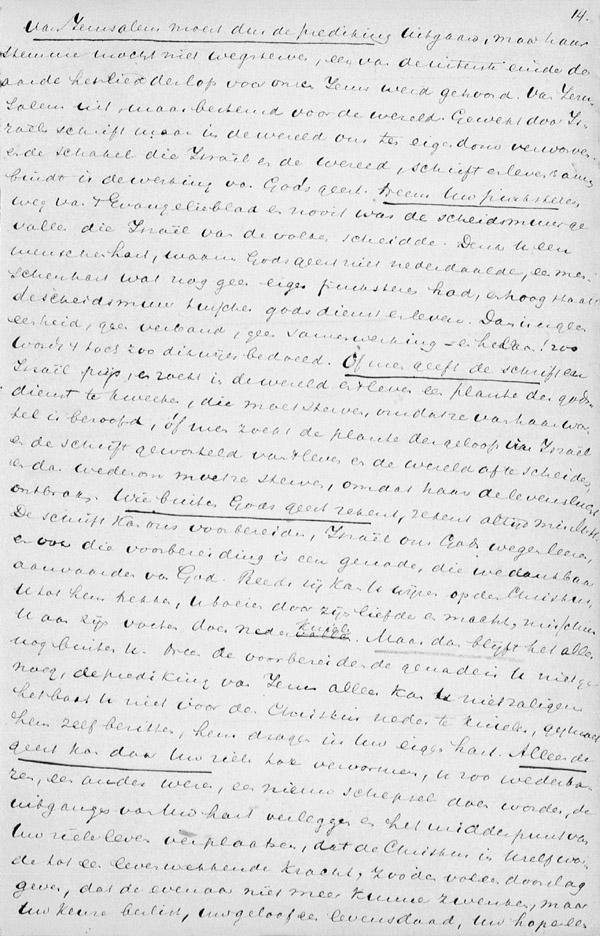 14.
Van Jerusalem moest dus de prediking uitgaan, maar haar
stemme mocht niet wegsterven, eer van de uiterste einde der
aarde het lied der lof voor onzen Jezus werd gehoord. Van Jeru-
salem uit, maar bestemd voor de wereld. Gewekt door Is-
raëls schrift maar in de wereld ons ten eigendom verworven
en de schakel die Israël en de wereld, schrift en leven aan een
bindt is de werking van Gods geest. Neem Uw pinksteren
weg van 't Evangelieblad en nooit was de scheidsmuur ge
vallen die Israël van de volken scheidde. Denk U een
menschenhart, waarin Gods geest niet nederdaalde, een men-
schenhart wat nog geen eigen pinksteren had, en hoog staat
de scheidsmuur tusschen godsdienst en leven. Dan is er geen
eenheid, geen verband, geen samenwerking en helaas! zoo
wordt 't toch zoo dikwijls bedoeld. Òf men geeft de schrift en
Israël prijs, en zoekt in de wereld en 't leven een plante der gods-
dienst te kweeken, die moet sterven, omdat ze van haar wor-
tel is beroofd, òf men zoekt de plante der geloof in Israël
en de schrift geworteld van 't leven en de wereld af te scheiden
en dan wederom moet ze sterven, omdat haar de levenslucht
ontbrak. Wie buiten Gods geest rekent, rekent altijd mis.
De schrift kan ons voorbereiden, Israël ons Gods wegen leeren
en ook die voorbereiding is een genade, die we dankbaar
aanvaarden van God. Reeds zij kan U wijzen op den Christus,
U tot hem trekken, U boeien door zijn liefde en macht, misschien
U aan zijn voeten doen nederknielen. Maar dan blijft het alles
nog buiten U. Deze de voorbereidende genade is U niet ge
noeg, de prediking van Jezus alleen kan U niet zaligen
het baat U niet voor den Christus neder te knielen, gij moet
hem zelf bezitten, hem dragen in Uw eigen hart. Alleen de
geest kan dan Uw ziele hervormen, U zoo wederba-
ren, een ander weren, een nieuw schepsel doen worden, de
uitgangen van Uw hart verleggen en het middenpunt van
Uw zieleleven verplaatsen, dat de Christus in U zelf wor-
de tot een levenwekkende kracht, zoo den vollen doorslag
geven, dat de evenaar niet meer kunne zwenken, maar
Uw keuze beslist, Uw geloof een levensdaad, Uw hope een